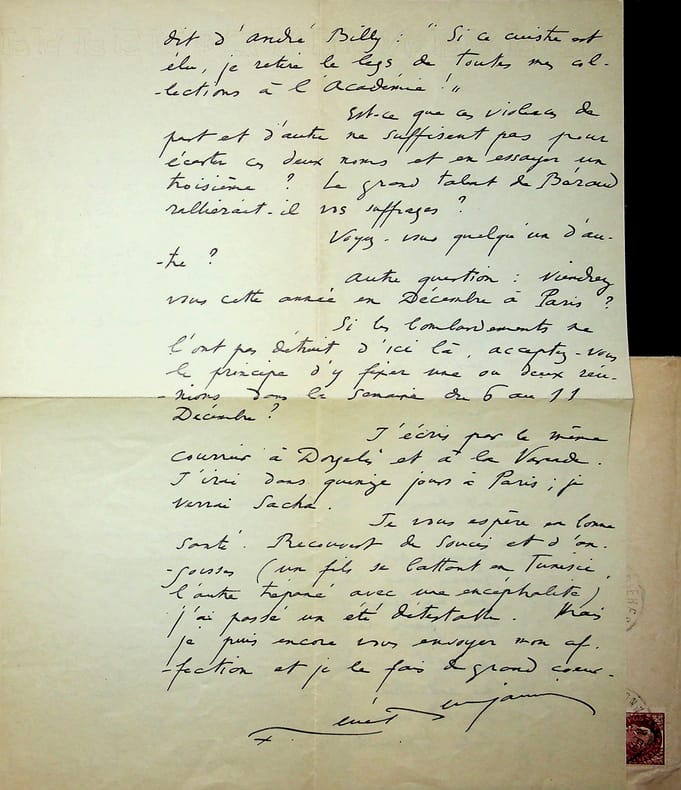 dit d'André Billy : "Si ce cuistre est
élu, je retire le legs de toutes mes col-
-lections à l'Académie !"
Est-ce que ces violences de
part et d'autre ne suffisent pas pour
écarter ces deux noms et en essayer un
troisième ? Le grand talent de Béraud
rallierait-il vos suffrages ?
Voyez-vous quelqu'un d'au-
-tre ?
Autre question : viendrez
vous cette année en Décembre à Paris ?
Si les bombardements ne
l'ont pas détruit d'ici là, acceptez-vous
le principe d'y fixer une ou deux réu-
-nions dans la semaine du 6 au 11
Décembre ?
J'écris par le même
courrier à Dorgelès et à la Varende.
J'irai dans quinze jours à Paris ; je
verrai Sacha.
Je vous espère en bonne
santé. Recouvert de soucis et d'an-
-goisses (un fils se battant en Tunisie,
l'autre trépané avec une encéphalite)
j'ai passé un été détestable. Mais
je puis encore vous envoyer mon af-
-fection et je le fais de grand coeur.
René Benjamin